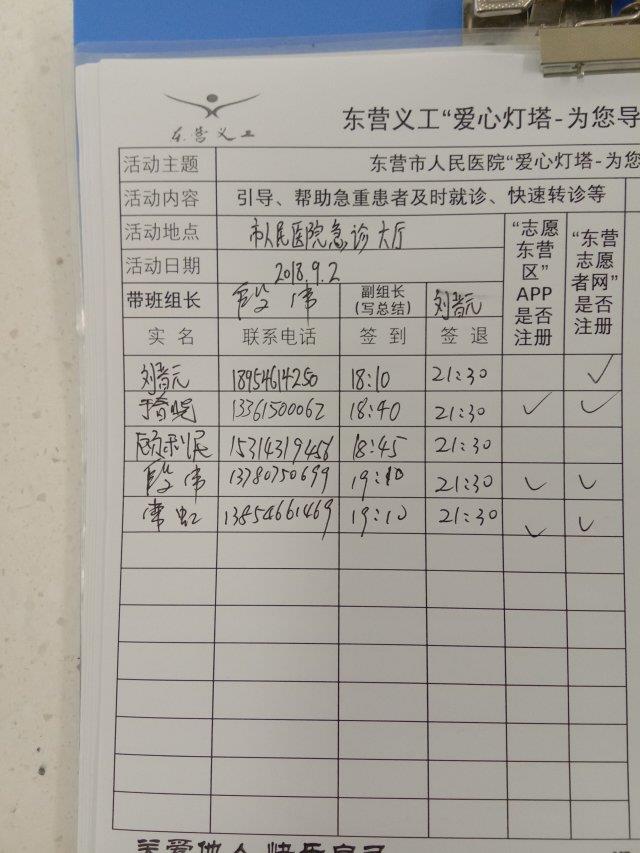 东营义工
东营义工“爱心灯塔-为您导
活动主题 东营市人民医院“爱心灯塔-为您
活动内容 引导、帮助急重患者及时就诊、快速转诊等
活动地点 市人民医院急诊大厅
活动日期 2018.9.2
“志愿东营区”APP是否注册
“东营志愿者网”是否注册
带班组长 段伟 副组长(写总结) 刘元
实名 联系电话 签到 签退
刘元 18954614250 18:10 21:30 ✓
13361500062 18:40 21:30 ✓ ✓
顾利民 15314319456 18:45 21:30
段伟 13780750699 19:10 21:30 ✓ ✓
常虹 13854661469 19:10 21:30 ✓ ✓
关爱他人 快乐自己